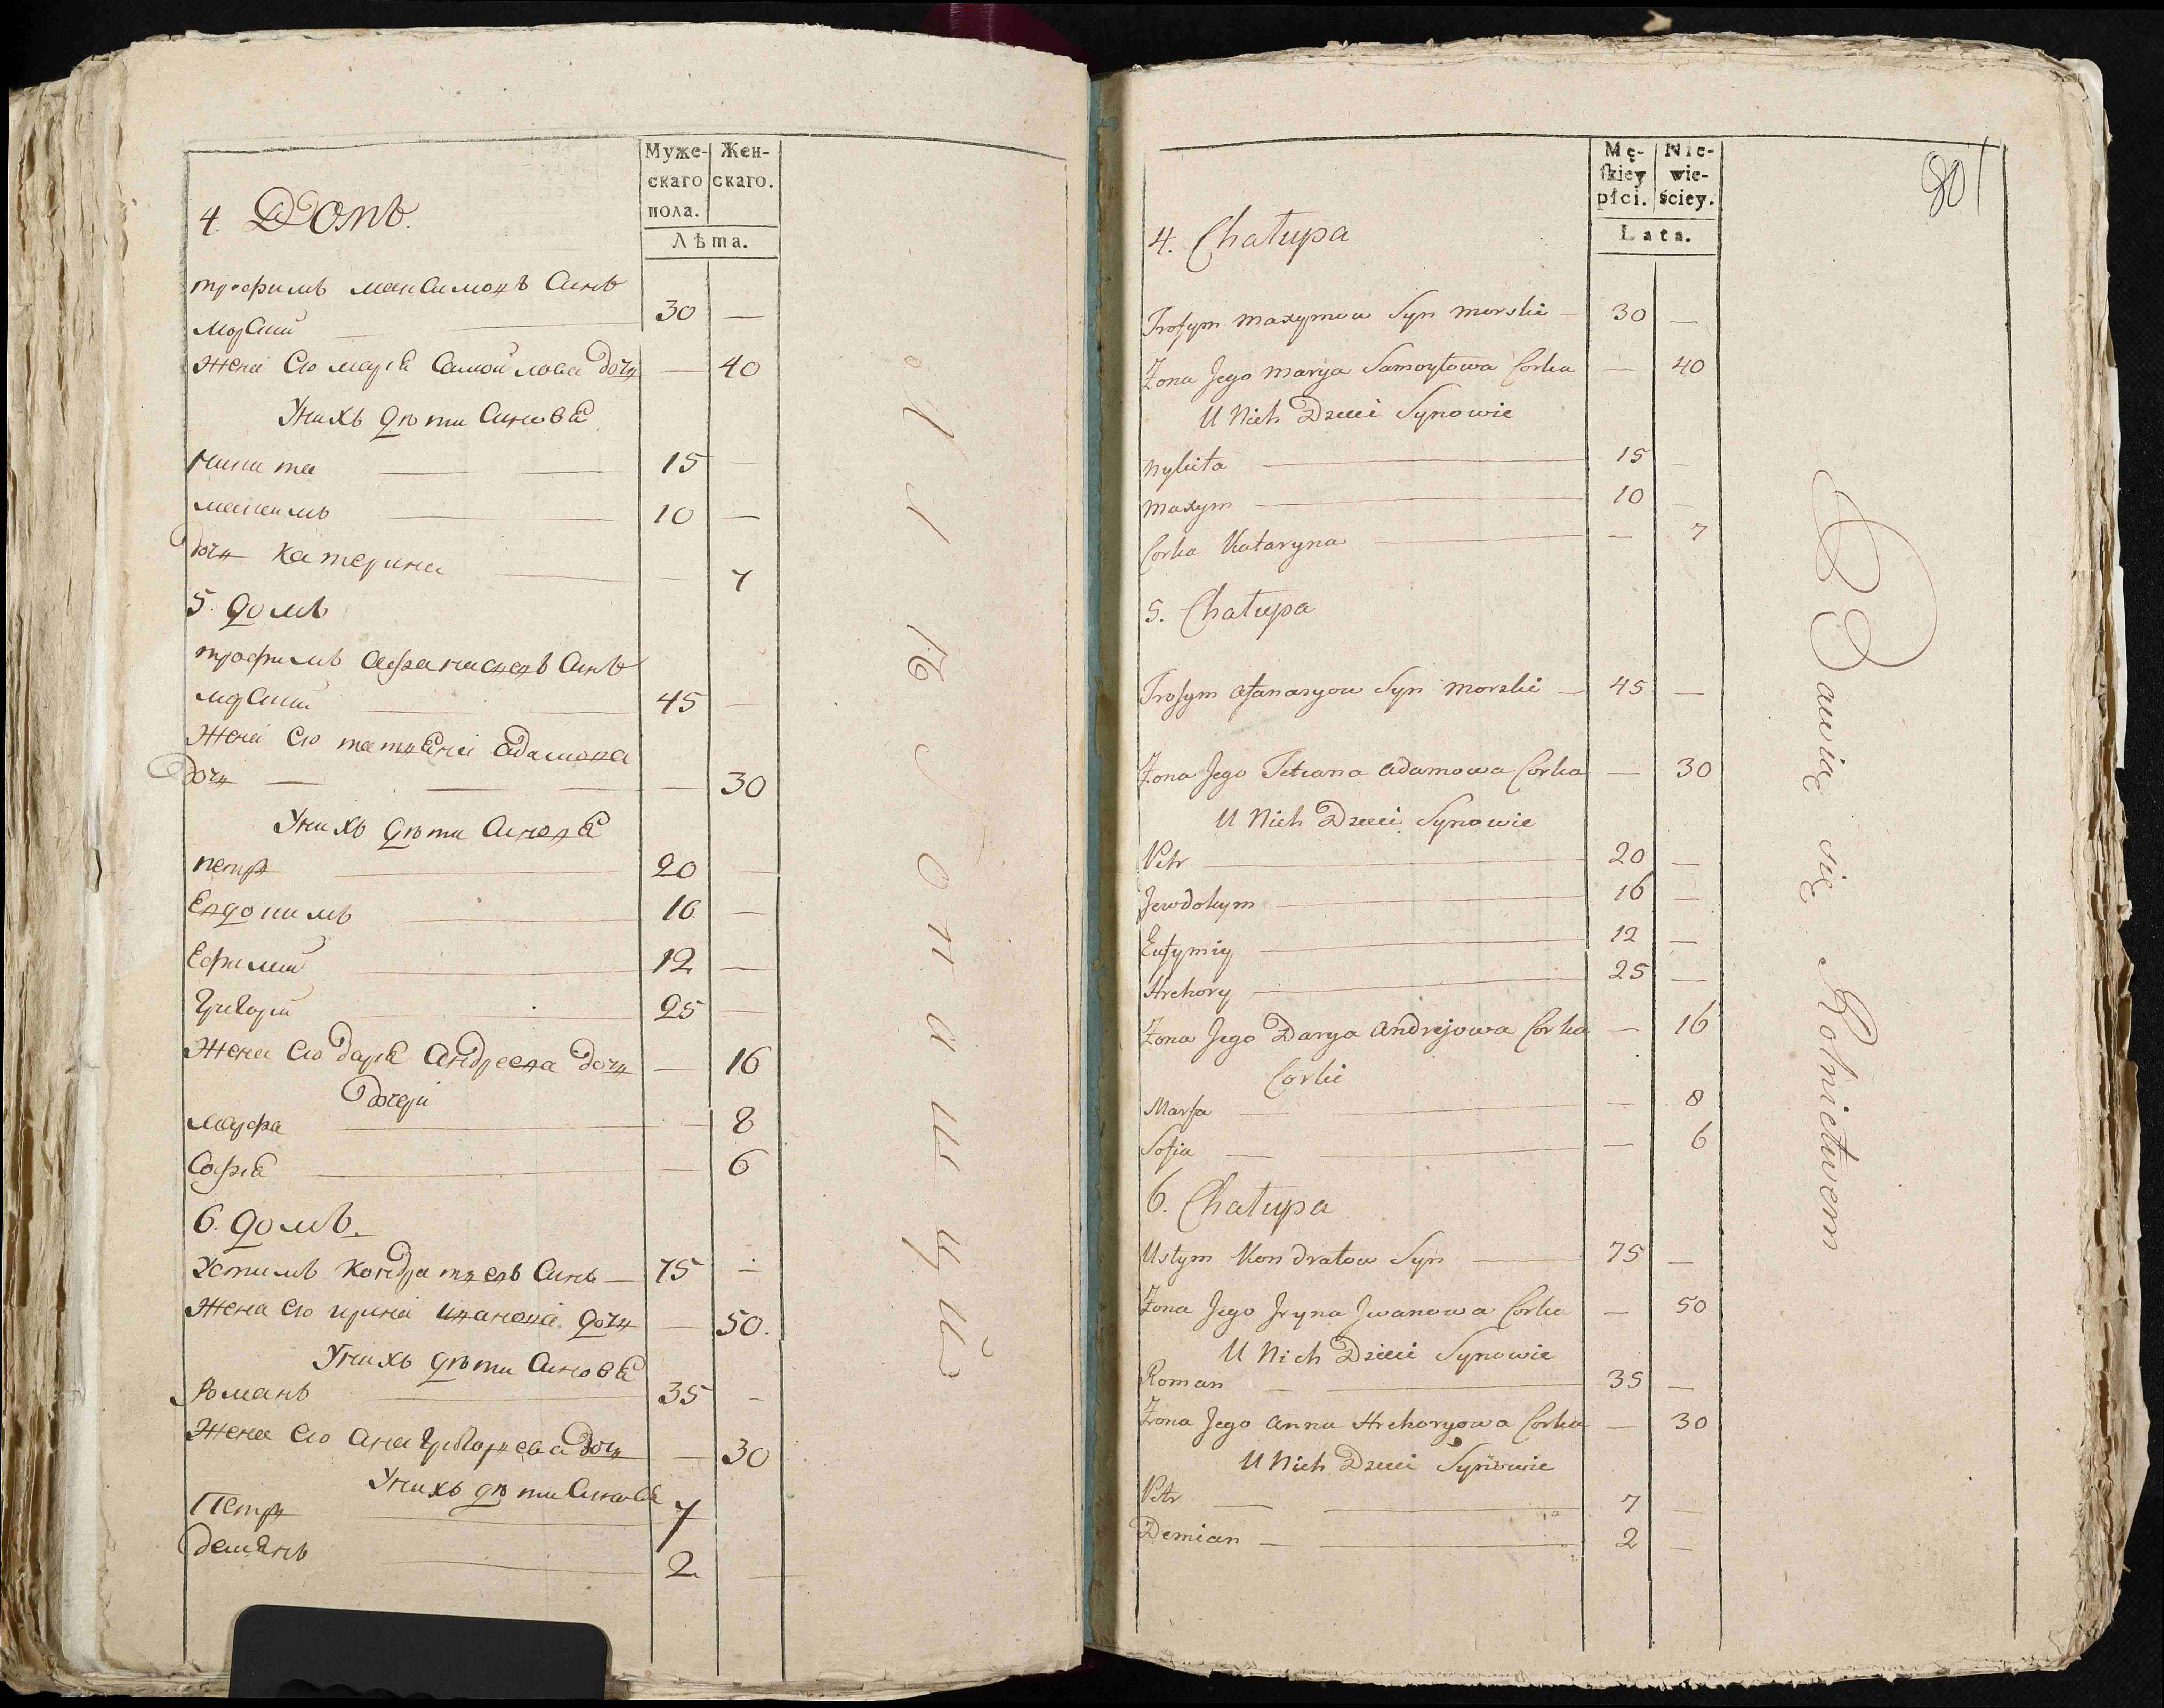 Муже-
скаго
пола.
Жен-
скаго.
Лѣта.
4. Домъ.
трофимъ максимовъ Синъ
мо̣рский 30 —
Жена Его маріѣ Самойлова дочь — 40
У нихъ дѣти Синовѣ
никита 15
максимъ 10 —
дочь катерина — 7
5. домъ
трофимъ афанасиевъ Синъ
морский 45 —
Жена Его татиѣна адамова
дочь — 30
У нихъ дѣти Синовѣ
петръ 20 —
Евдокимъ 16 —
Ефимий 12 —
григорий 25 —
Жена Его даріѣ андреева дочь — 16
дочери
марфа — 8
Софіѣ — 6
6. домъ.
Устимъ кондратиевъ Синъ — 75 —
Жена Его ирина иванова дочь — 50.
У нихъ дѣти Синовѣ
Романъ 35 —
Жена Его ана григориева дочь — 30
У нихъ дѣти Синовѣ
Петръ 7
демѣнъ 2 —
80
Mę-
skiey
płci.
Nie-
wie-
ściey.
Lata.
4. Chałupa
Trofym maxymow Syn morski — 30 —
Zona Jego marya Samoyłowa Corka — 40
U Nich Dzieci Synowie
Nykita 15 —
maxym 10 —
Corka Kataryna — 7
5. Chałupa
Trofym afanasyow Syn morski — 45 —
Zona Jego Tetiana adamowa Corka — 30
U Nich Dzieci Synowie
Petr 20 —
Jewdokym 16 —
Eufymiy 12 —
Hrehory 25 —
Zona Jego Darya andrejowa Corka — 16
Corki
Marfa — 8
Sofia — 6
6. Chałupa
Ustym Kondratow Syn 75 —
Zona Jego Jryna Jwanowa Corka — 50
U Nich Dzieci Synowie
Roman 35 —
Zona Jego anna Hrehoryowa Corka — 30
U Nich Dzieci Synowie
Petr 7 —
Demian 2 —
Bawią się Rolnictwem